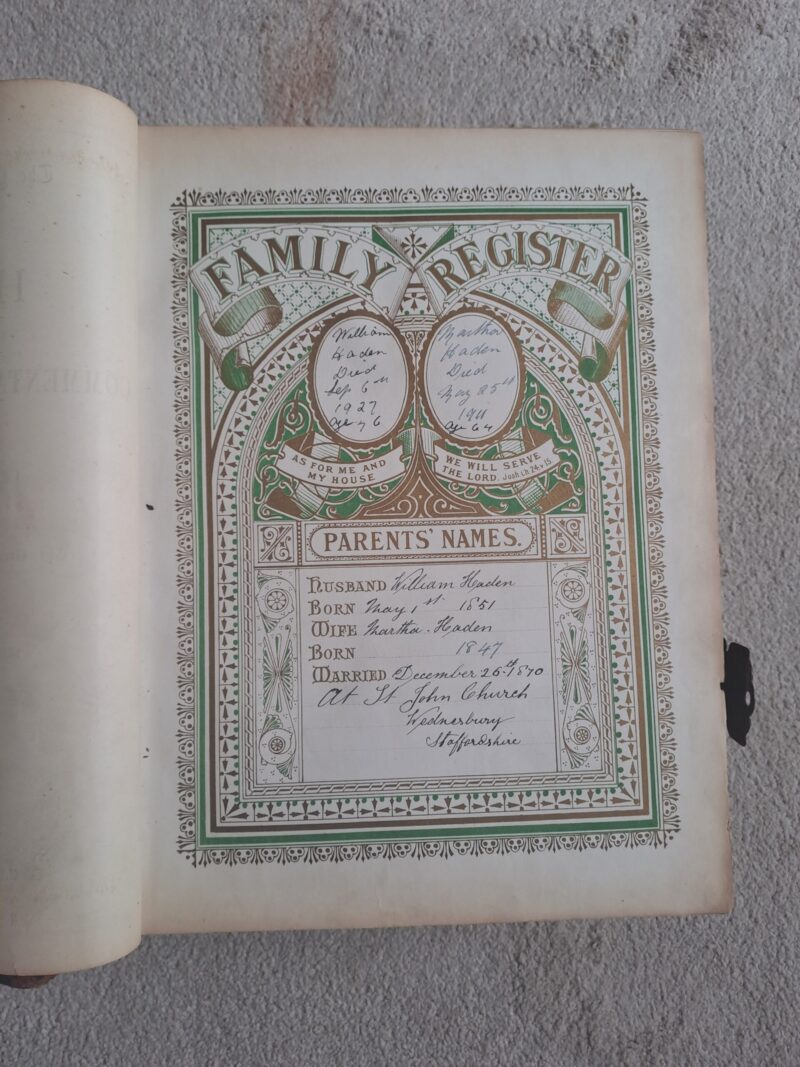 FAMILY REGISTER
William
Haden
Died
Sep 6th
1927
Age 76
Martha
Haden
Died
May 25th
1911
Age 64
AS FOR ME AND
MY HOUSE
WE WILL SERVE
THE LORD. Josh ch 24. v 15
PARENTS' NAMES.
HUSBAND William Haden
BORN May 1st 1851
WIFE Martha. Haden
BORN 1847
MARRIED December 26th 1870
At St John Church
Wednesbury
Staffordshire